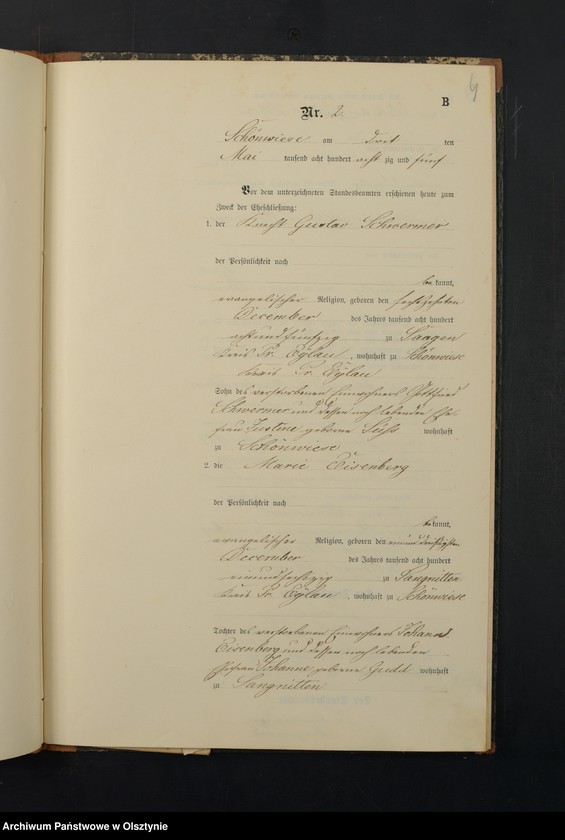 4
B
Nr. 2.
Schönwiese am drei ten
Mai tausend acht hundert acht zig und fünf
Vor dem unterzeichneten Standesbeamten erschienen heute zum
Zweck der Eheschließung:
1. der Knecht Gustav Schwermer
der Persönlichkeit nach
be kannt,
evangelischer Religion, geboren den sechszehnten
December des Jahres tausend acht hundert
achtundfünfzig zu Saagen
Kreis Pr. Eylau, wohnhaft zu Schönwiese
Kreis Pr. Eylau
Sohn des verstorbenen Einwohners Gottfried
Schwermer und dessen noch lebenden Ehe-
frau Justine geborene Süß wohnhaft
zu Schönwiese
2. die Marie Eisenberg
der Persönlichkeit nach
be kannt,
evangelischer Religion, geboren den einunddreißigsten
December des Jahres tausend acht hundert
einundsechszig zu Sangnitten
Kreis Pr. Eylau, wohnhaft zu Schönwiese
Tochter des verstorbenen Einwohners Johann
Eisenberg und dessen noch lebenden
Ehefrau Johanne geborene Gudd wohnhaft
zu Sangnitten
Archiwum Państwowe w Olsztynie